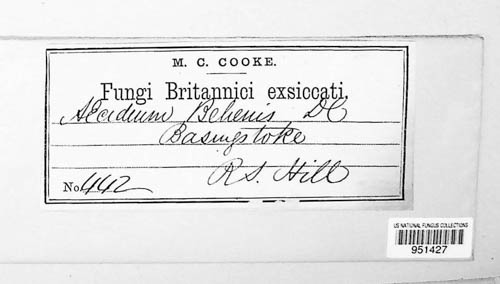 M. C. COOKE.
Fungi Britannici exsiccati.
Æcidium Behenis DC
Basingstoke
R S. Hill
No. 442
US NATIONAL FUNGUS COLLECTIONS
951427